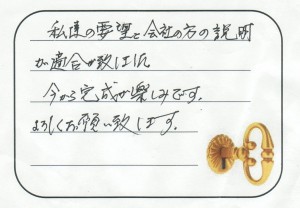 私達の要望と会社の方の説明
が適合が致し
今から完成が楽しみです。
よろしくお願い致します。